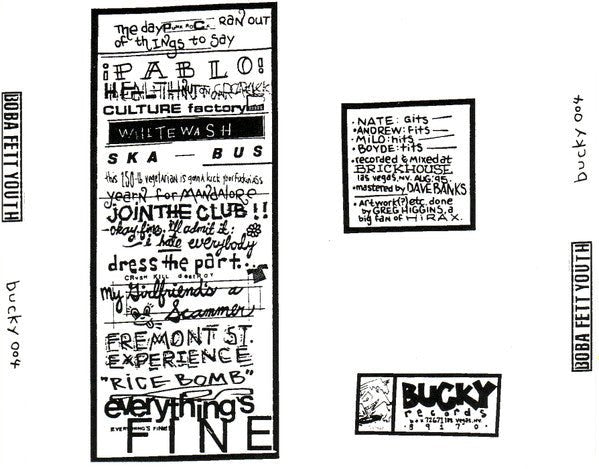 BOBA FETT YOUTH
bucky 004
The day PUNK ROCK RAN OUT
of thINgs to say
¡PABLO!
CULTURE factory
WHITEWASH
SKA — BUS
this 150-lb vegetarian is gonna kick your fuckin ass
yearn for MANDALORE
JOIN THE CLUB!!
okay fine, I'll admit it:
i hate everybody
dress the part...
CRUSH KILL DESTROY
My Girlfriend's a
Scammer
FREMONT ST.
EXPERIENCE
"RICE BOMB"
everything's
EVERYTHING'S FINE
FINE
• NATE: Gits
• ANDREW: Fits
• MiLO: hits
• BOYDE: tits
• recorded & mixed at
BRICKHOUSE
las vegas, NV. AUG. 95.
• mastered by DAVE BANKS
• Artwork(?) etc. done
by GREG HIGGINS, a
big fan of HIRAX.
BUCKY
records
box 72671 las vegas, nv.
89170
bucky 004
BOBA FETT YOUTH